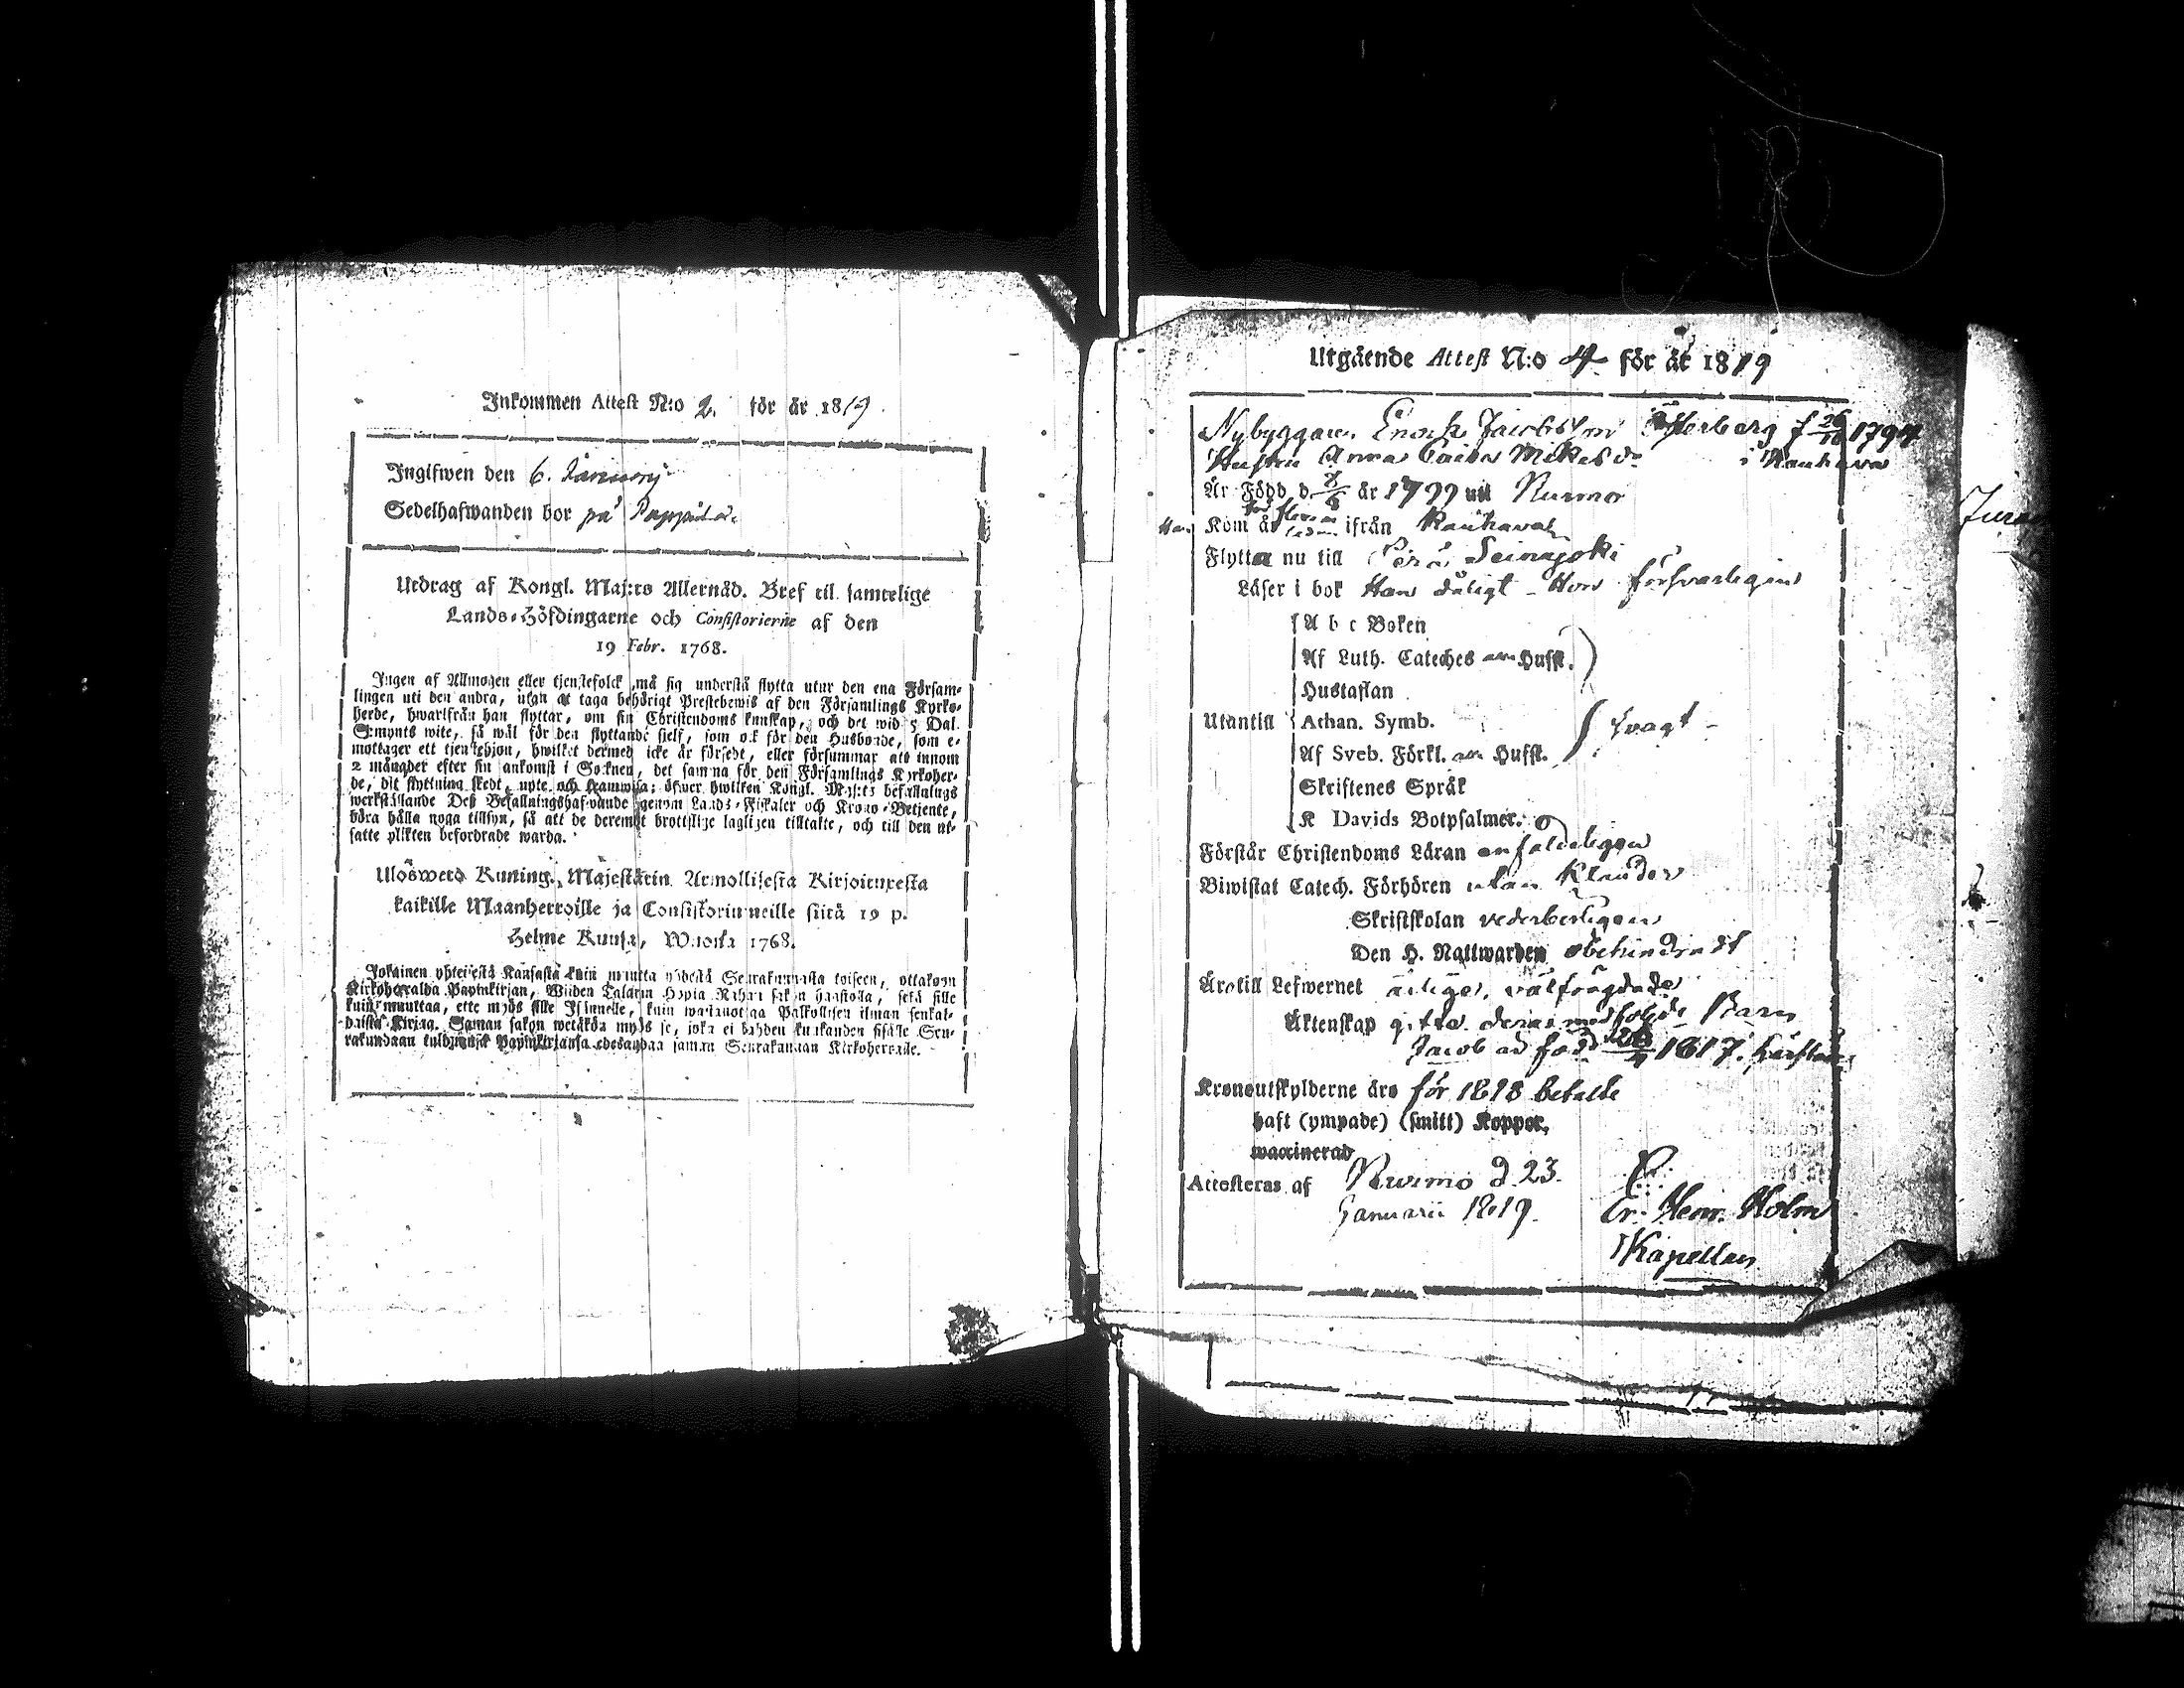 Inkommen Attest N:o 2. för år 1819.
Ingifwen den 6. Januarij
Sedelhafwanden bor på Pappila.
Utdrag af Kongl. Maj:ts Allernåd. Bref til samtelige
Lands-Höfdingarne och Consistorierne af den
19 Febr. 1768.
Ingen af Allmogen eller tjenstefolck må sig understå flytta utur den ena Försam-
lingen uti den andra, utan at taga behörigt Prestebewis af den Församlings Kyrko-
herde, hwarifrån han flyttar, om sin Christendoms kunskap, och det wid 5 Dal.
S:mynts wite, så wäl för den flyttande sielf, som ock för den Husbonde, som e-
mottager ett tjenstehjon, hwilket dermed icke är försedt, eller försummar att innom
2 månader efter sin ankomst i Socknen, det samma för den Församlings Kyrkoher-
de, dit flyttning skedt, upte och framwisa; öfwer hwilken Kongl. Maj:ts befallnings
werkställande Deß Befallningshafwande genom Lands-Fiskaler och Krono-Betjente,
böra hålla noga tillsyn, så att de deremot brottslige lagligen tilltalte, och till den ut-
satte plikten befordrade warda.
Ulöswetd Kuning. Majestätin Armollisesta Kirjoituxesta
kaikille Maanherroille ja Consistoriumeille siitä 19 p.
Helme Kuusa, Wuonna 1768.
Jokainen yhteisestä Kansasta kuin muutta yhdestä Seurakunnasta toiseen, ottakoon
Kirkoherralda Papinkirjan, Wiiden Talarin Hopia Rahan sakon haastolla, sekä sille
kuin muuttaa, ette myös sille Isännelle, kuin wastanottaa Palkollisen ilman senkal-
daista Kirjaa. Saman sakon wetäkön myös se, joka ei kahden kuukauden sisälle Seu-
rakundaan tulduansa Papinkirjansa edesandaa samman Seurakunnan Kirkoherralle.
Utgående Attest N:o 4 för år 1819
Nybyggaren Enoch Jacobsson Österberg f 26/10 1794
Hustru Anna Caisa Mickelsd:r i Kauhava
Är Född d 8/6 år 1799 uti Nurmo
Han Kom år ifrån Kauhava
Flytta nu till Perä Seinäjoki
Läser i bok Han dåligt - Hon försvarligen
A b c Boken
Af Luth. Cateches Hufst.
Hustaflan
Utantill Athan. Symb. svagt -
Af Sveb. Förkl. Hufst.
Skriftenes Språk
K Davids Botpsalmer.
Förstår Christendoms Läran enfaldeligen
Biwistat Catech. Förhören utan klander
Skriftskolan vederbörligen
Den H. Nattwarden obehindradt
Äro till Lefwernet ärlige, välfrägdade
Äktenskap gifte. deras medföljde Barn
Jacob är född 1817.
Kronoutskylderne äro för 1818 betalte
haft (ympade) (smitt) Koppor,
waccinerad
Attesteras af Nurmo d. 23.
Januarii 1819.
Er. Henr. Holm
Kapellan